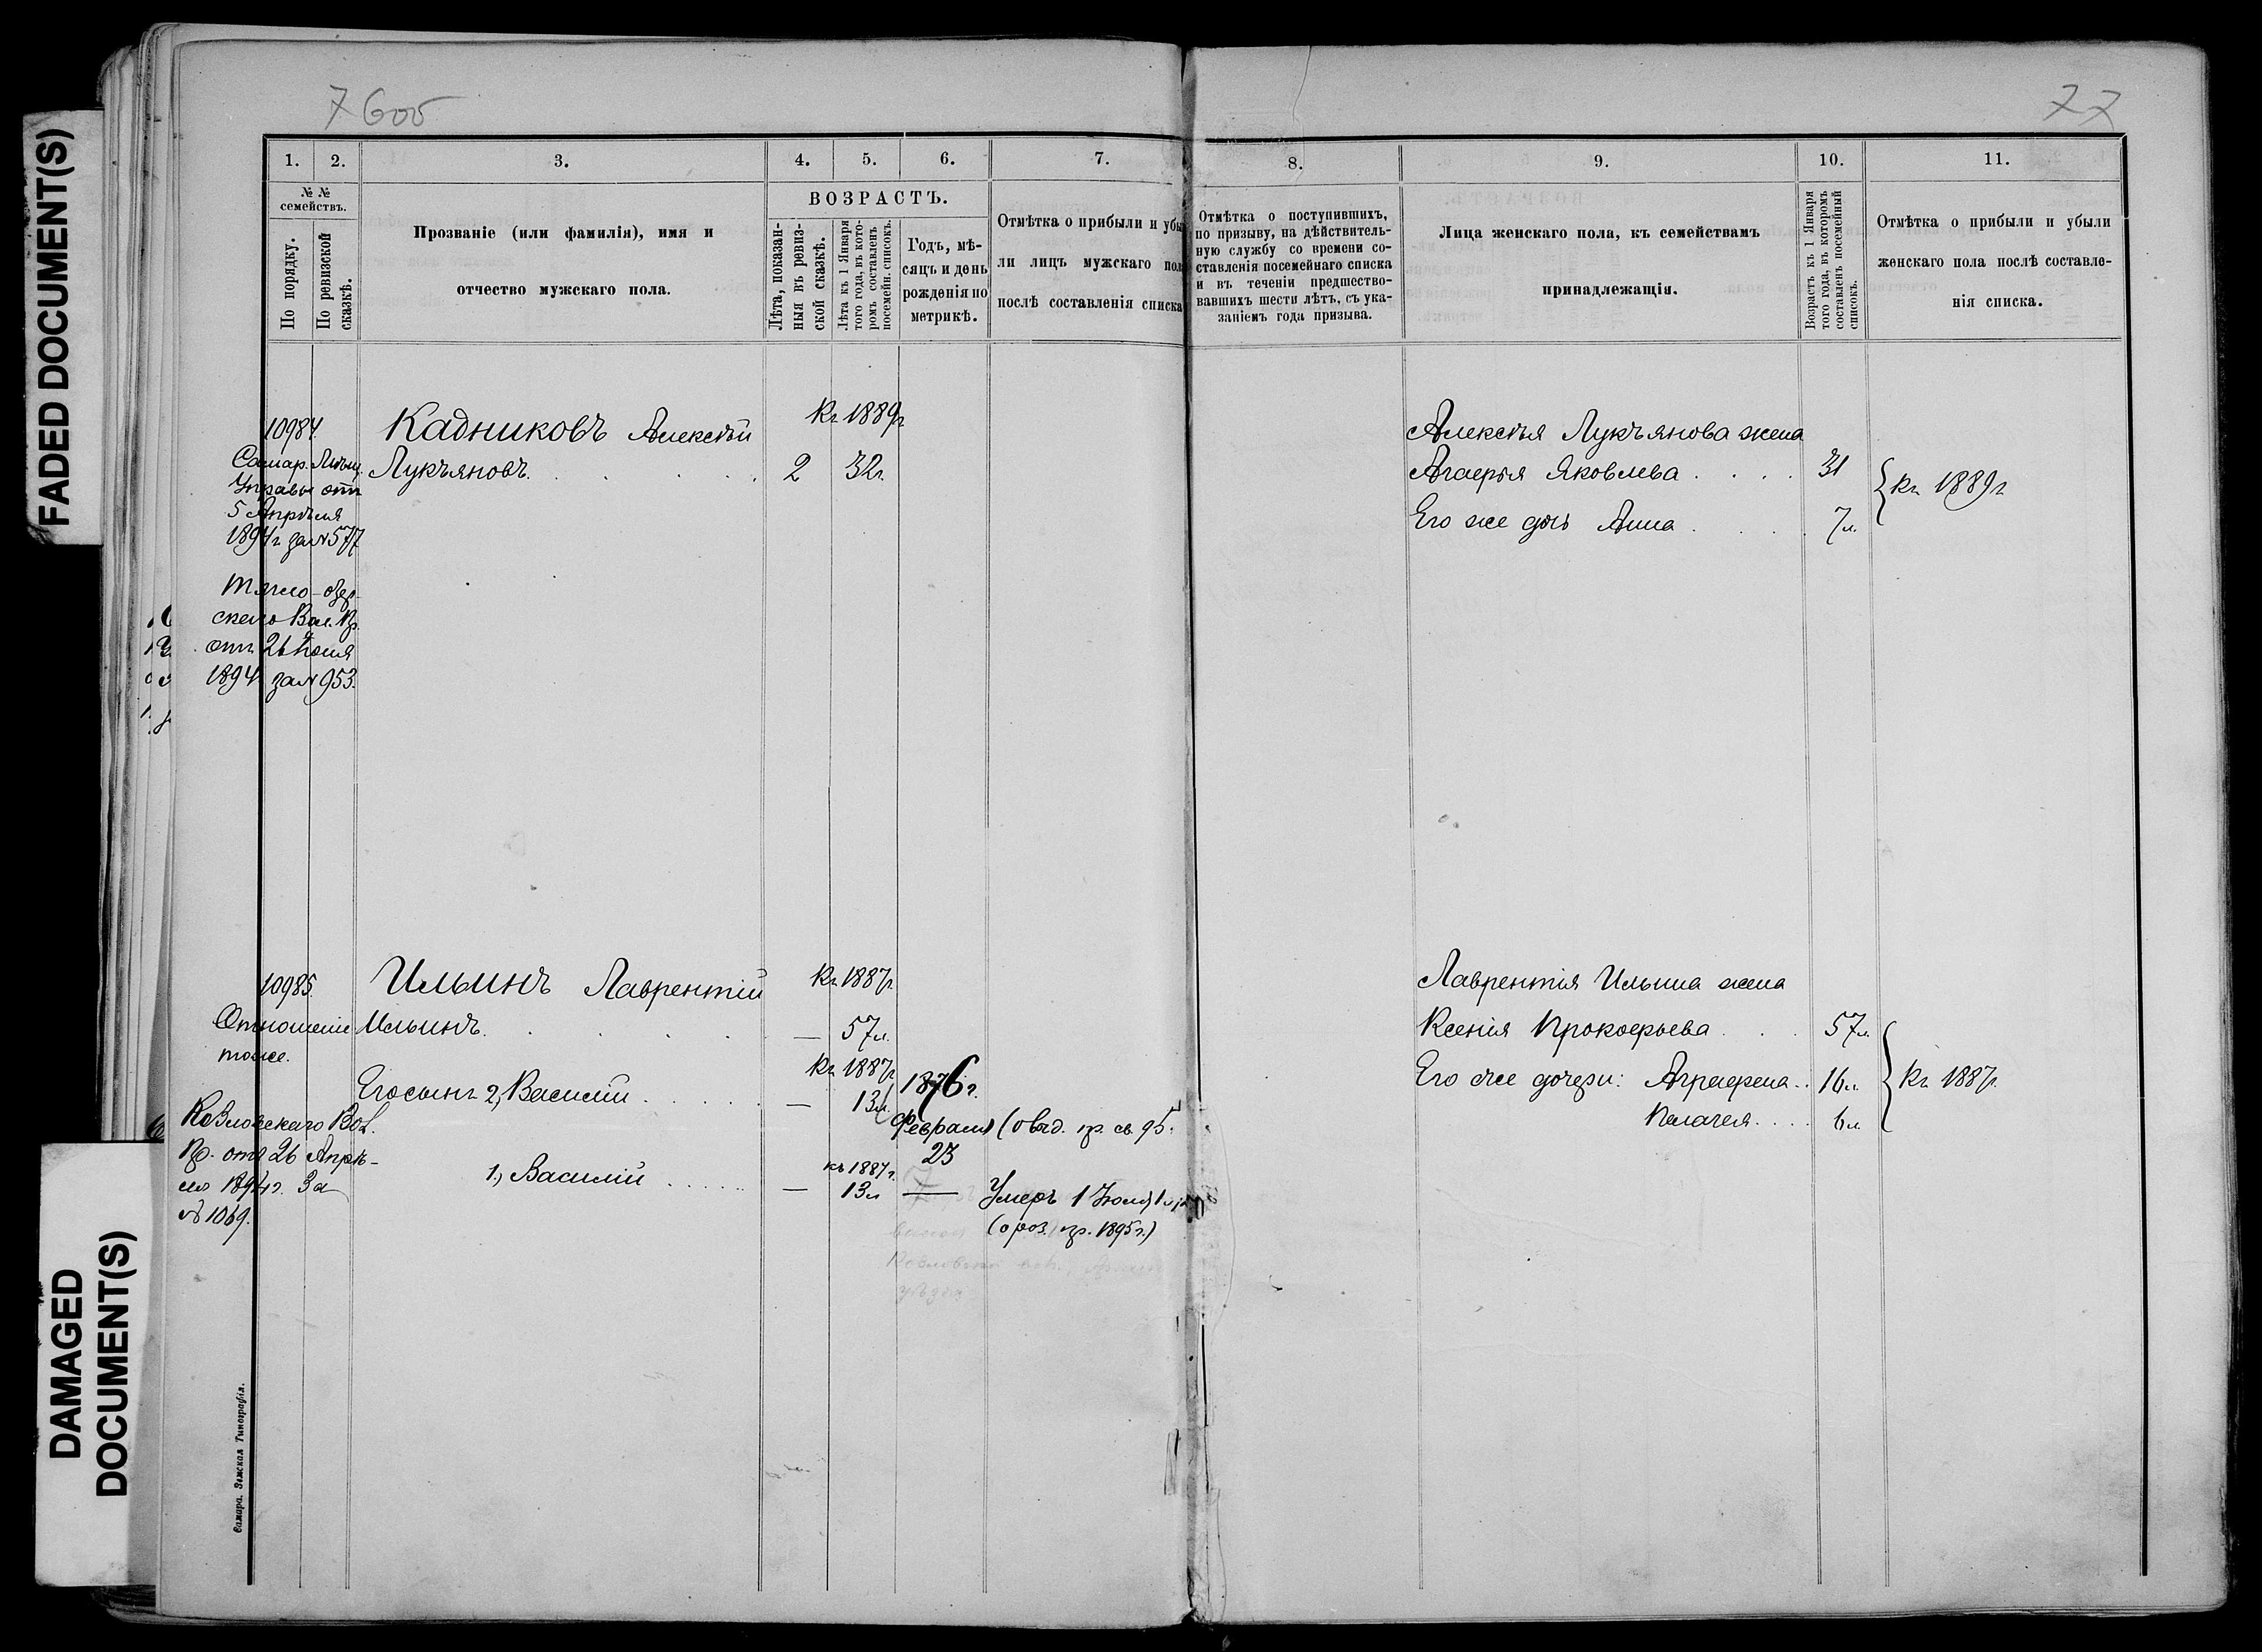 FADED DOCUMENT(S)
DAMAGED
DOCUMENT(S)
77
1.
2.
3.
4.
5.
6.
7.
8.
9.
10.
11.
№ №
семействъ.
По порядку.
По ревизской
сказкѣ.
Прозваніе (или фамилія), имя и
отчество мужскаго пола.
ВОЗРАСТЪ.
Лѣта, показан-
ныя въ ревиз-
ской сказкѣ.
Лѣта къ 1 Января
того года, въ кото-
ромъ составленъ
посемейн. списокъ.
Годъ, мѣ-
сяцъ и день
рожденія по
метрикѣ.
Отмѣтка о прибыли и убы
ли лицъ мужскаго пол
послѣ составленія списка
Отмѣтка о поступившихъ,
по призыву, на дѣйствитель-
ную службу со времени со-
ставленія посемейнаго списка
и въ теченіи предшество-
вавшихъ шести лѣтъ, съ ука-
заніемъ года призыва.
Лица женскаго пола, къ семействамъ
принадлежащія.
Возрастъ къ 1 Января
того года, въ которомъ
составленъ посемейный
списокъ.
Отмѣтка о прибыли и убыли
женскаго пола послѣ составле-
нія списка.
10984.
Самар. Мѣщ.
Управы отъ
5 Апрѣля
1894 г за № 577
Тягло-озер-
скаго Вол. Пр.
отъ 26 Іюля
1894 за № 953.
Кадниковъ Алексѣй
Лукъяновъ.
Къ 1889 г
2
32 г.
Алексѣя Лукъянова жена
Агафья Яковлева
31
Его же дочь Анна
7 л.
Къ 1889 г
10985.
Отношеніе
тоже.
Козловскаго Вол.
Пр. отъ 26 Апрѣ-
ля 1894 г. За
№ 1069.
Ильинъ Лаврентій
Ильинъ.
Къ 1887 г.
—
57 л.
Его сынъ 2, Василій
Къ 1887 г
—
13 л.
1876 г.
Февраля
23
1., Василій
къ 1887 г.
—
13 л
—
Умеръ 1 Іюля
Лаврентія Ильина жена
Ксенія Прокофьева
57 л.
Его же дочери: Аграфена
16 л.
Пелагея
6 л.
Къ 1887 г.
Самара. Земская Типографія.